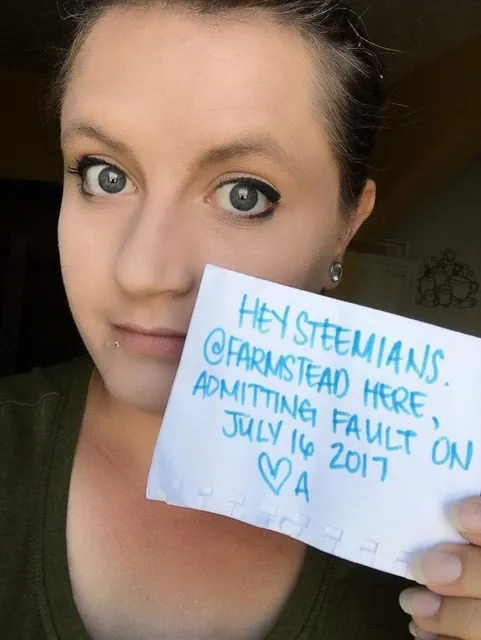 HEY STEEMIANS.
@FARMSTEAD HERE,
ADMITTING FAULT ON
JULY 16 2017
♡ A